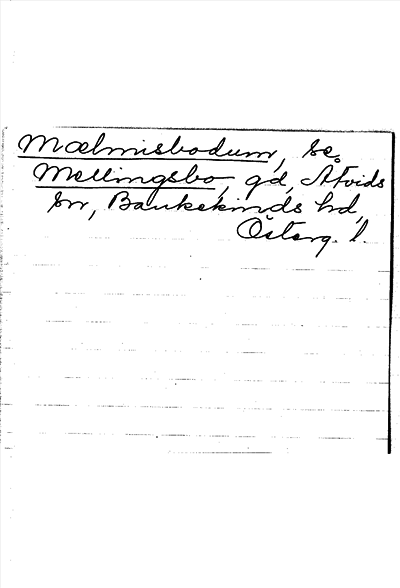 Mælmisbodum, se
Mellingsbo, gd, Åtvids
sn, Bankekinds hd,
Österg. l.